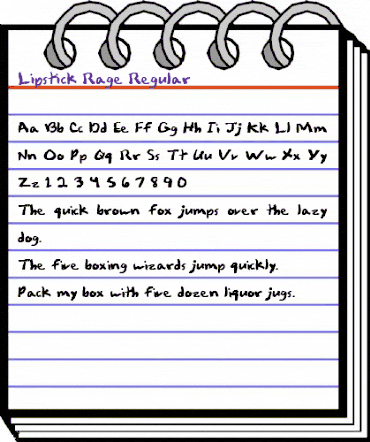 Lipstick Rage Regular
Aa Bb Cc Dd Ee Ff Gg Hh Ii Jj Kk Ll Mm
Nn Oo Pp Qq Rr Ss Tt Uu Vv Ww Xx Yy
Zz 1 2 3 4 5 6 7 8 9 0
The quick brown fox jumps over the lazy
dog.
The five boxing wizards jump quickly.
Pack my box with five dozen liquor jugs.